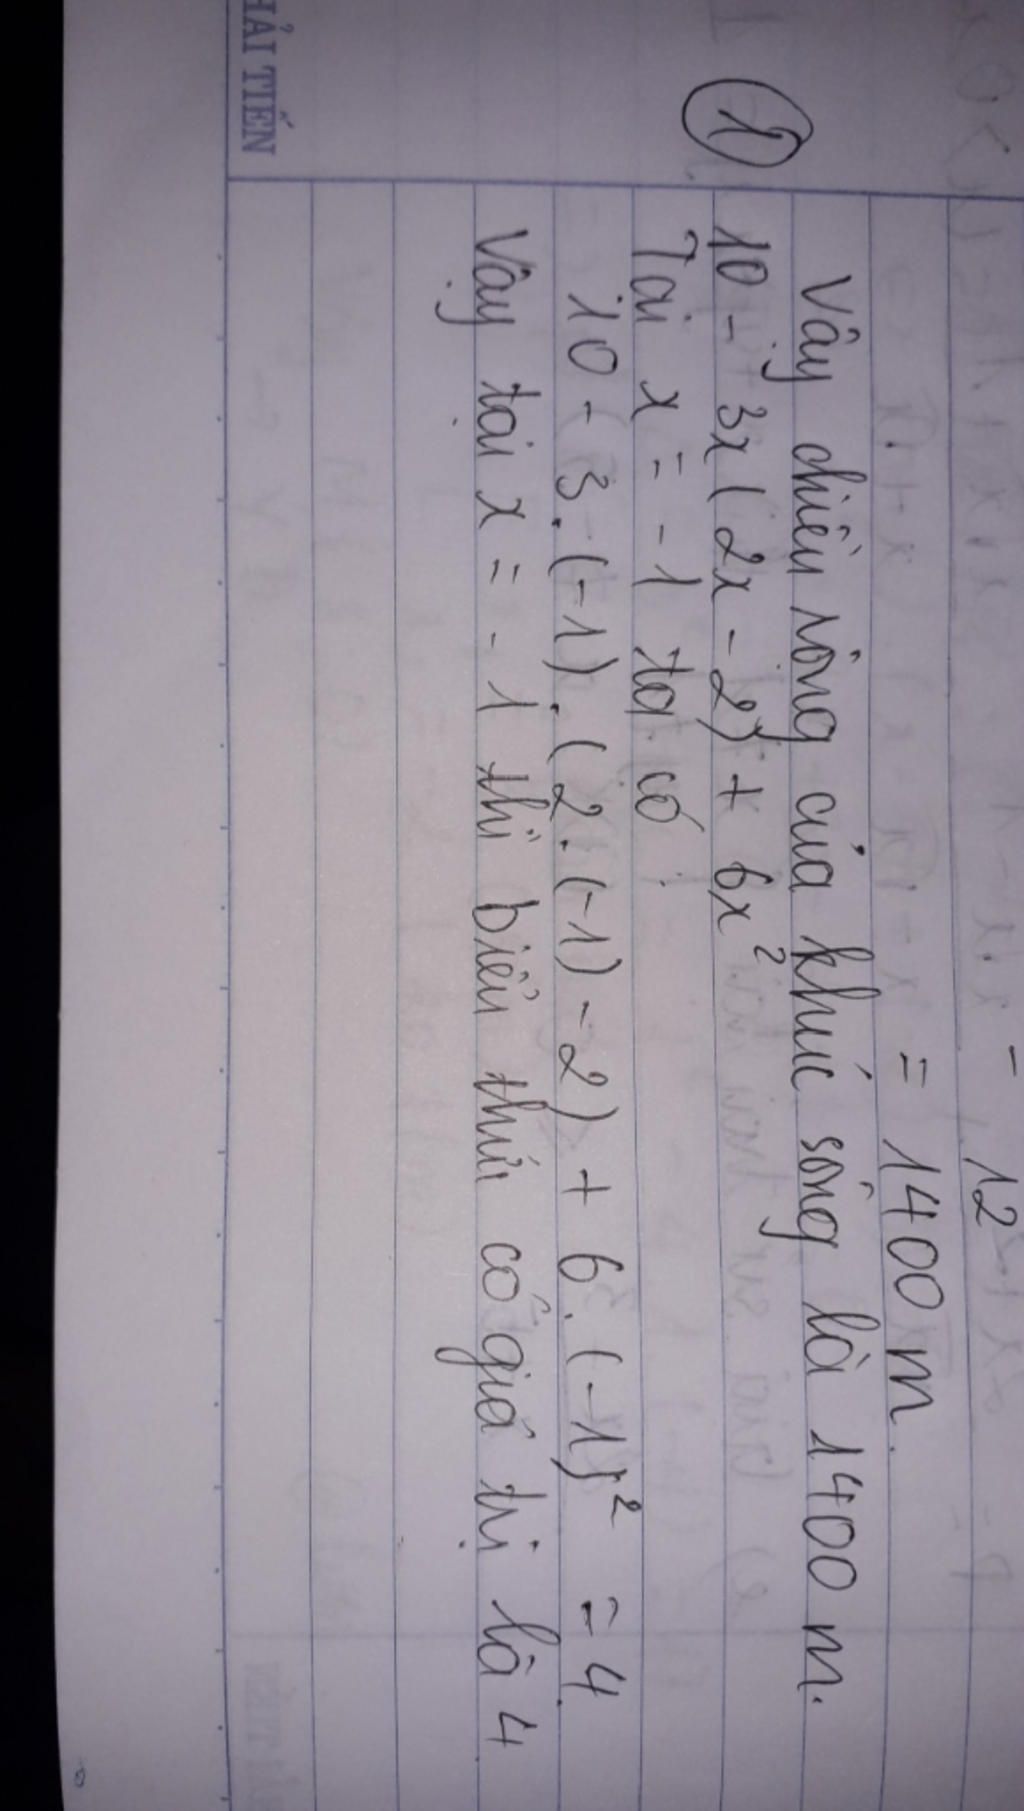 12
= 1400 m.
Vây chiều rông của khúc sông là 1400 m.
① 10 - 3x (2x - 2) + 6x²
Tai x = -1 ta có
10 - 3. (-1). (2. (-1) - 2) + 6. (-1)² = 4
Vậy tại x = - 1 thì biểu thức có giá trị là 4
HẢI TIẾN